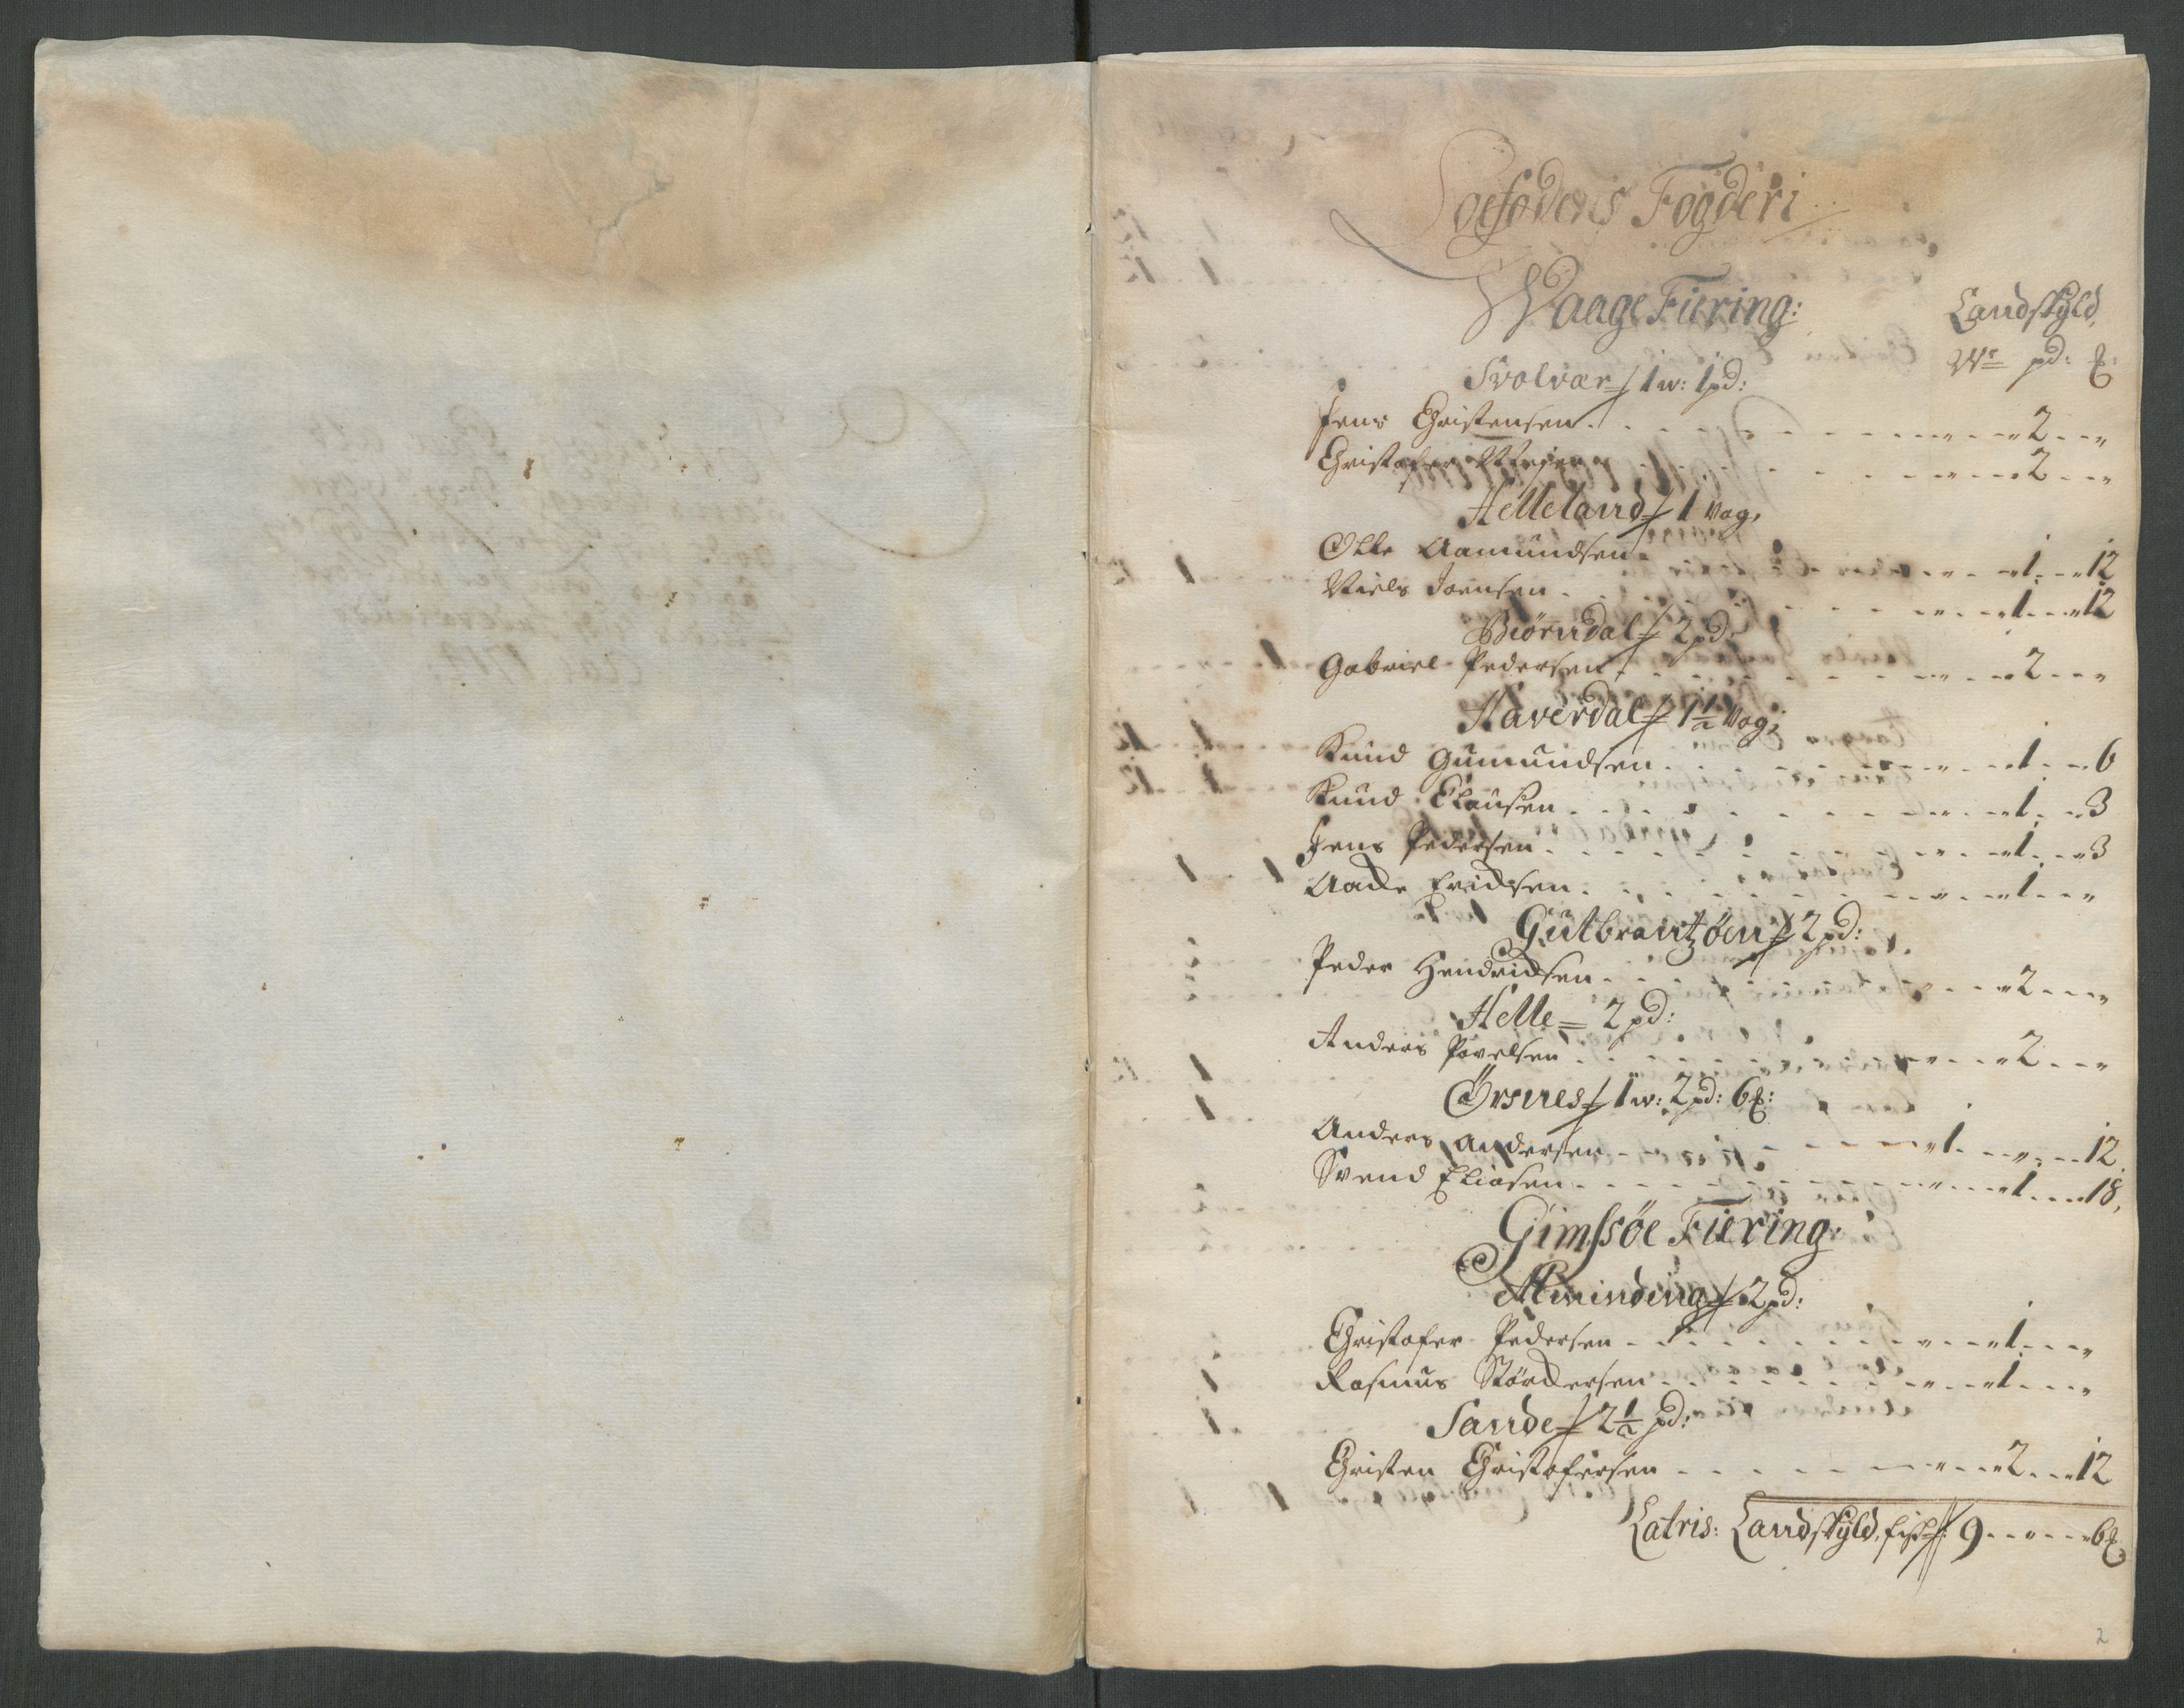 Loefodens Fögderi
Waage Fiering:
Landskÿld
W: pd: ℔:
Svolvær 1 w: 1 pd:
Jens Christensen 2
Christofer 2
Helleland 1 vog,
Olle Aamundsen 1 12
Niels Joensen 1 12
Biörndal 2 pd:
Gabriel Pedersen 2
Haverdal 1 1/2 vog;
Knud Gumundsen 1 6
Knud Clausen 1 3
Jens Pedersen 1 3
Aacke Ericksen 1
Gulbrantzöen 2 pd:
Peder Hendricksen 2
Helle 2 pd:
Anders Povelsen 2
Örsnes 1 w: 2 pd: 6 ℔:
Anders Andersen 1 12
Svend Eliasen 1 18,
Gimssöe Fiering.
Alminding 2 pd:
Christofer Pedersen 1
Rasmus Störckersen 1
Sande 2 1/2 pd:
Christen Christofersen 2 12
Latris: Landskÿld, fisk 9 6 ℔
2